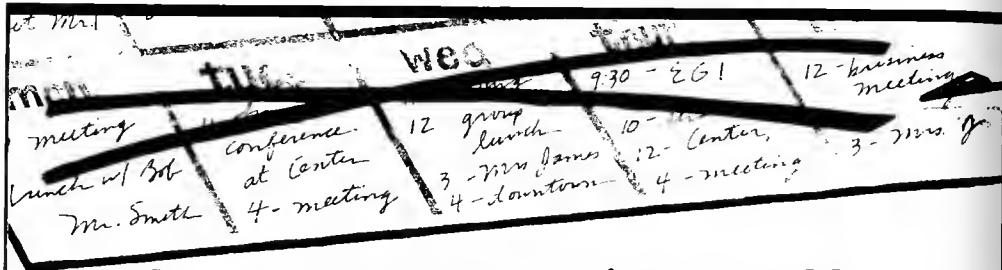 mon
meeting
Lunch w/ Bob
Mr. Smith
tues
conference
at Center
4 - meeting
wed
12 group
lunch
3 - Mrs James
4 - downtown
thur
9:30 - EG!
10 -
12 - Center,
4 - meeting
12 - business
meeting
3 - Mrs.